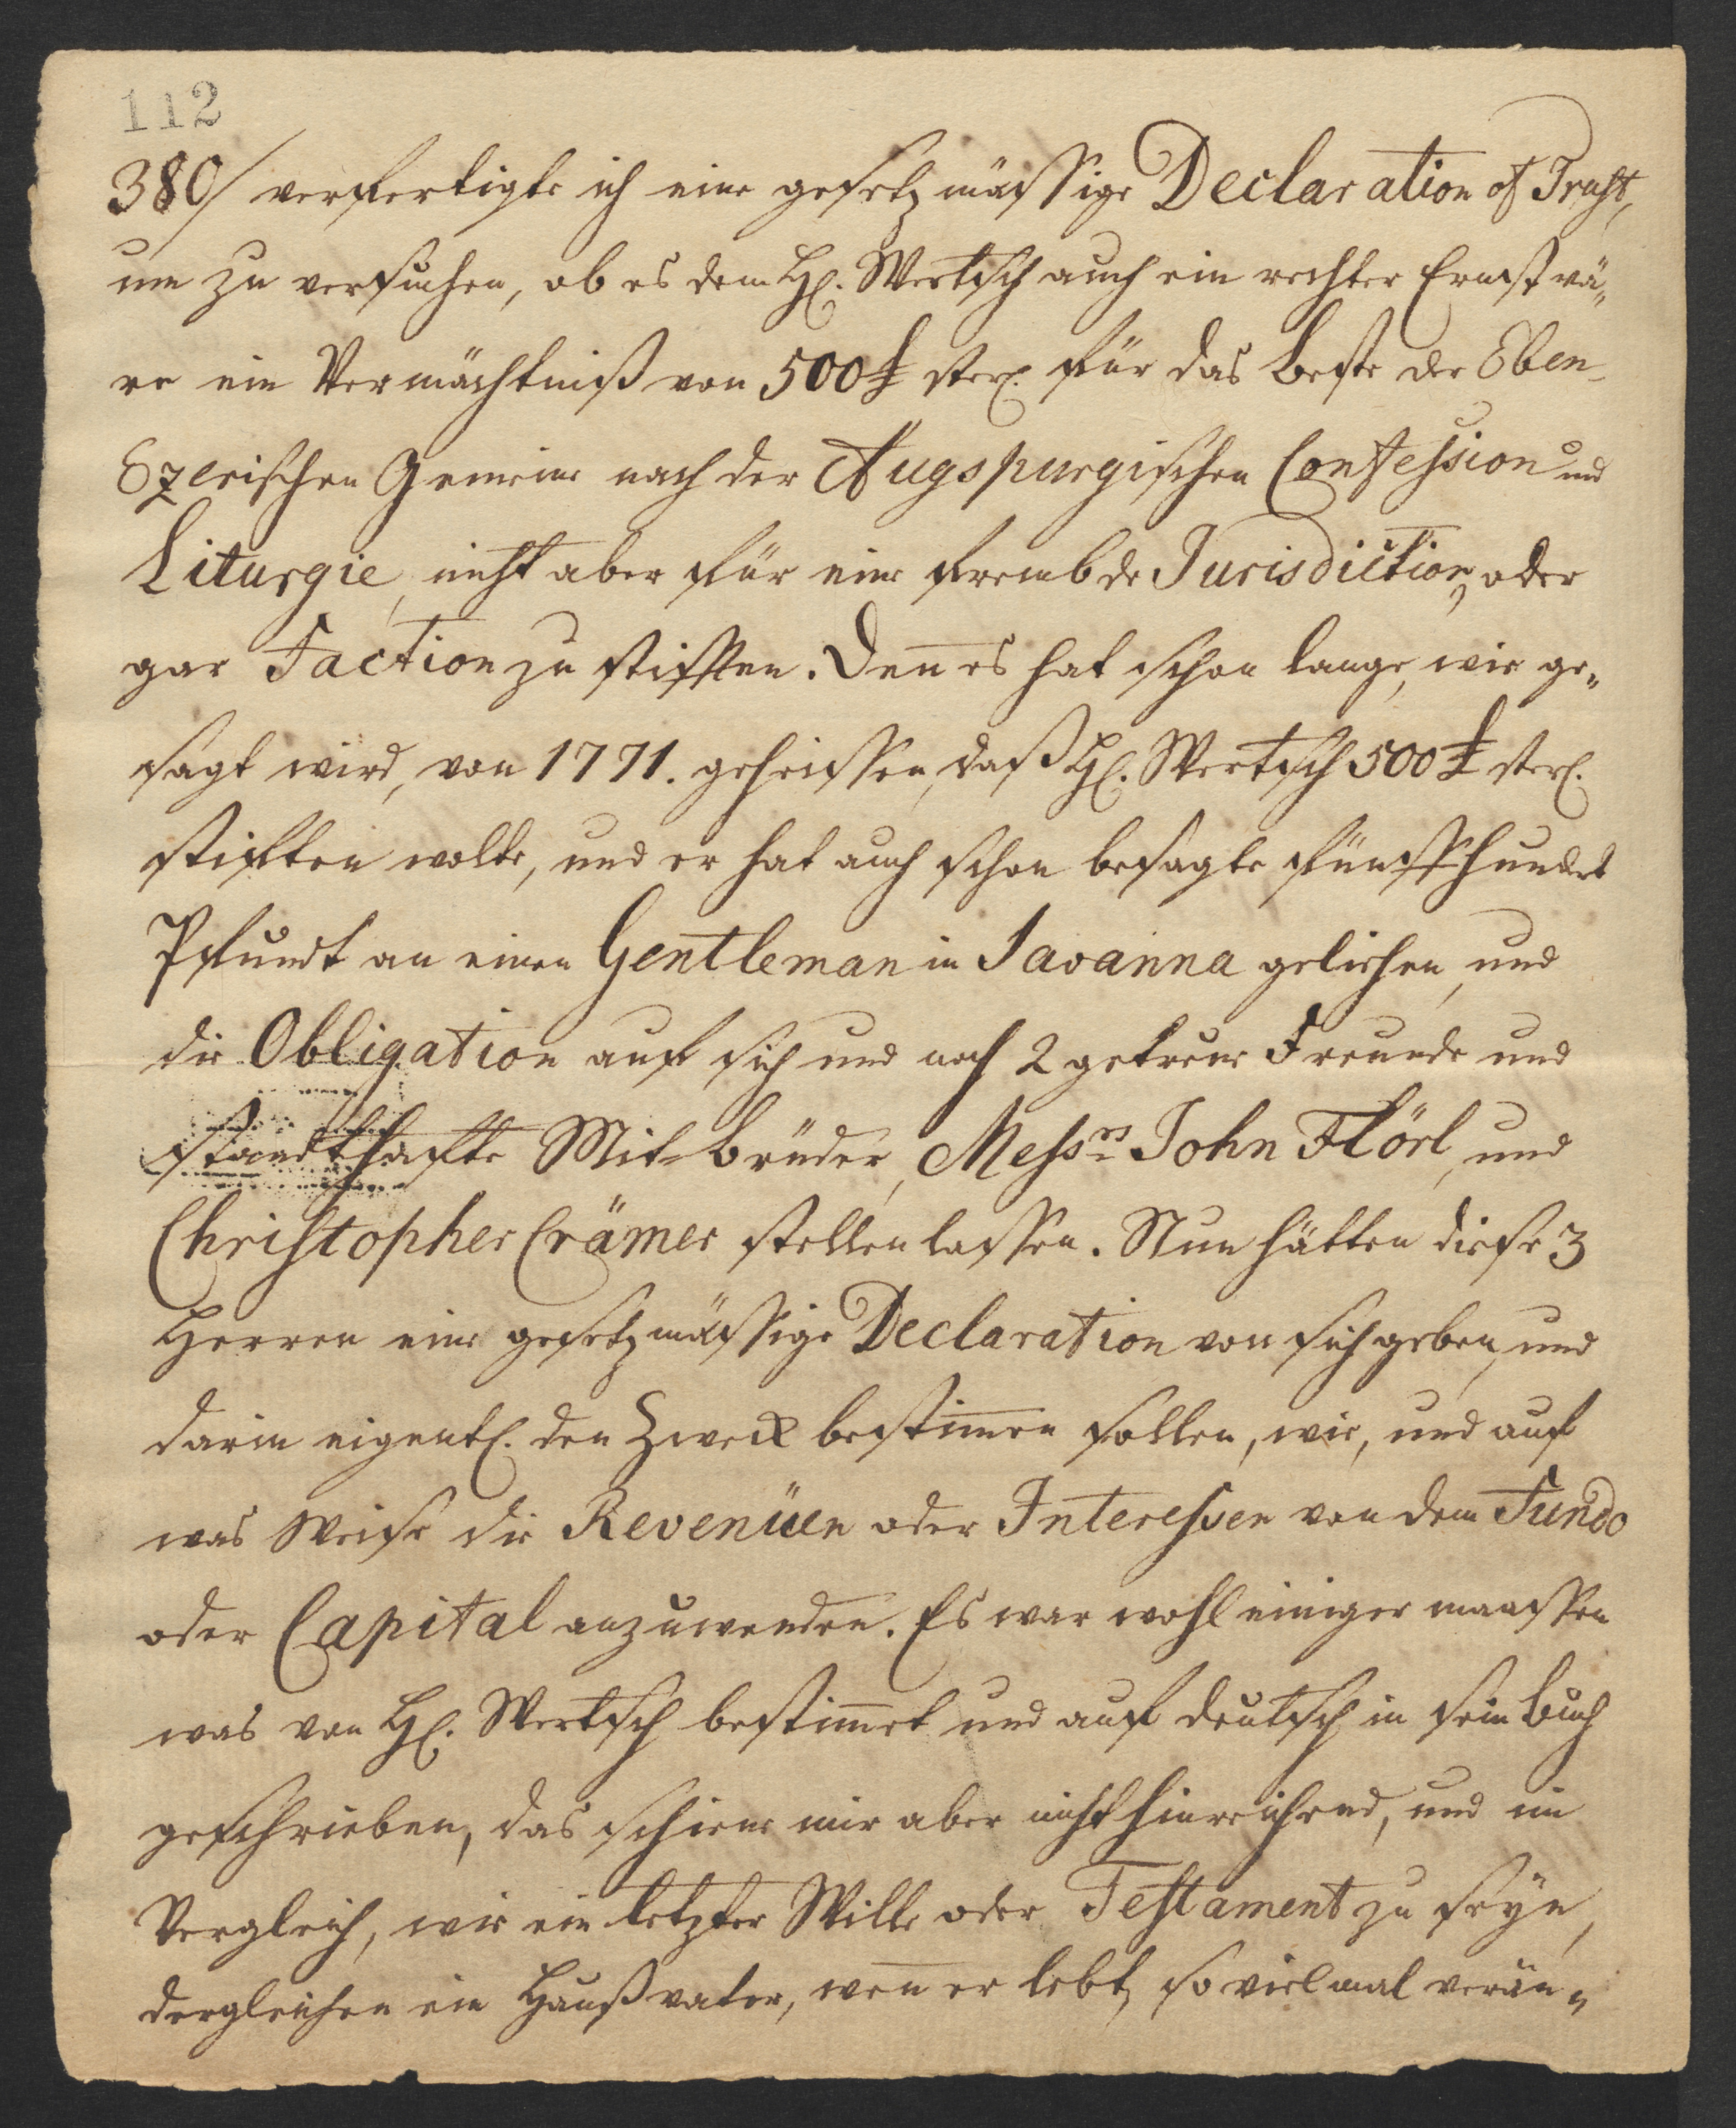 112
380/ verfertigte ich eine gesetzmässige Declaration of Trust,
um zu versuchen, ob es dem H. Wertsch auch ein rechter Ernst wä„
re ein Vermächtniß von 500 £ sterl. für das beste der Eben-
Ezerischen Gemeine nach der Augspurgischen Confession und
Liturgie, nicht aber für eine frembde Jurisdiction, oder
gar Faction zu stifften. Den̅ es hat schon lange, wie ge„
sagt wird, von 1771. geheissen, daß H. Wertsch 500 £ sterl.
stifften wolte, und er hat auch schon besagte fünffhundert
Pfundt an einen Gentleman in Savanna geliehen, und
die Obligation auf sich und noch 2 getreue Freunde und
standthaffte Mit-brüder, Messrs John Flörl, und
Christopher Crämer stellen lassen. Nun hätten diese 3
Herren eine gesetzmässige Declaration von sich geben, und
darin eigentl. den Zweck bestim̅en sollen, wie, und auf
was Weise die Revenüen oder Interessen von dem Fundo
oder Capital anzuwenden. Es war wohl einiger maassen
was von H. Wertsch bestim̅et und auf deutsch in sein Buch
geschrieben, das schiene mir aber nicht hinreichend, und im
Vergleich, wie ein letzter Wille oder Testament zu seyn,
dergleichen ein Haußvater, wen̅ er lebt, so vielmal verän„